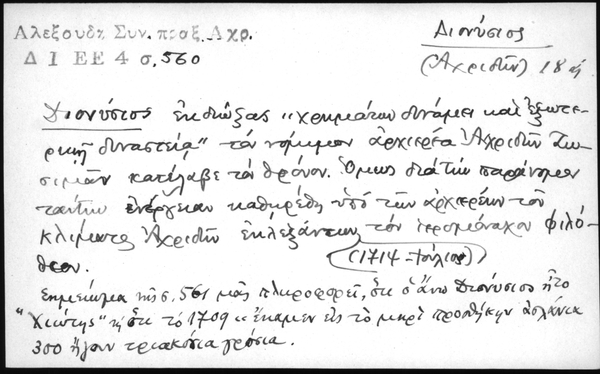 Αλεξούδη Συν. πραξ. Αχρ.
Δ Ι ΕΕ 4 σ. 560
Διονύσιος
(Αχριδῶν) 18 ος
Διονύσιος ἐκδιώξας "χρημάτων δυνάμει καὶ ἐξωτε-
ρικῇ δυναστείᾳ" τὸν νόμιμον ἀρχιερέα Ἀχριδῶν Ζω-
σιμᾶν κατέλαβε τὸν θρόνον. Ὅμως διὰ τὴν παράνομον
ταύτην ἐνέργειαν καθηρέθη ὑπὸ τῶν ἀρχιερέων τοῦ
κλίματος Ἀχριδῶν ἐκλεξάντων τὸν ἱερομόναχον Φιλό-
θεον. (1714 - Ἰούλιος)
Σημείωμα τῆς σ. 561 μᾶς πληροφορεῖ, ὅτι ὁ ἄνω Διονύσιος ἦτο
"Χιώτης" κ' ὅτι τὸ 1709 "ἔκαμεν εἰς τὸ μηρὶ προσθήκην ἀσλάνια
300 ἤγουν τριακόσια γρόσια.